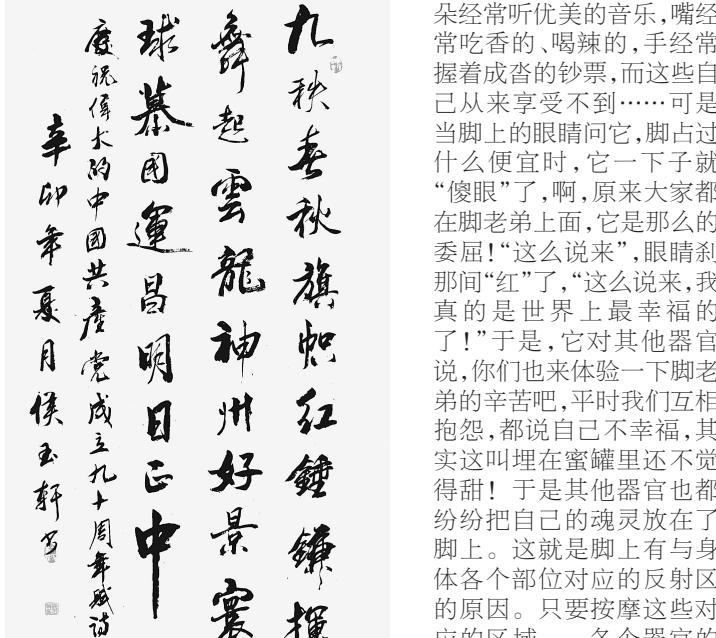 九秩春秋旗幟紅錘鎌揮
舞起雲龍神州好景寰
球慕國運昌明日正中
慶祝偉大的中國共產党成立九十周年賦诗
辛卯年夏月侯玉轩书
朵经常听优美的音乐,嘴经
常吃香的、喝辣的,手经常
握着成沓的钞票,而这些自
己从来享受不到……可是
当脚上的眼睛问它,脚占过
什么便宜时,它一下子就
“傻眼”了,啊,原来大家都
在脚老弟上面,它是那么的
委屈!“这么说来”,眼睛刹
那间“红”了,“这么说来,我
真的是世界上最幸福的
了!”于是,它对其他器官
说,你们也来体验一下脚老
弟的辛苦吧,平时我们互相
抱怨,都说自己不幸福,其
实这叫埋在蜜罐里还不觉
得甜! 于是其他器官也都
纷纷把自己的魂灵放在了
脚上。这就是脚上有与身
体各个部位对应的反射区
的原因。只要按摩这些对